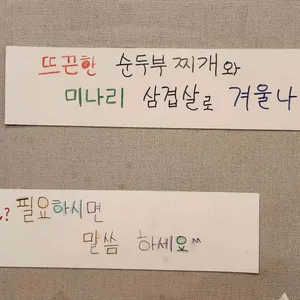 뜨끈한 순두부 찌개와
미나리 삼겹살로 겨울나
? 필요하시면
말씀 하세요^^